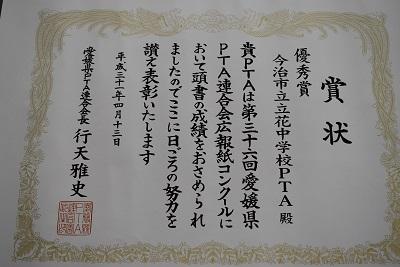 賞状
優秀賞
今治市立立花中学校PTA殿
貴PTAは第三十六回愛媛県
PTA連合会広報紙コンクールに
おいて頭書の成績をおさめられ
ましたのでここに日ごろの努力を
讃え表彰いたします
平成三十一年四月十三日
愛媛県PTA連合会長 行天雅史